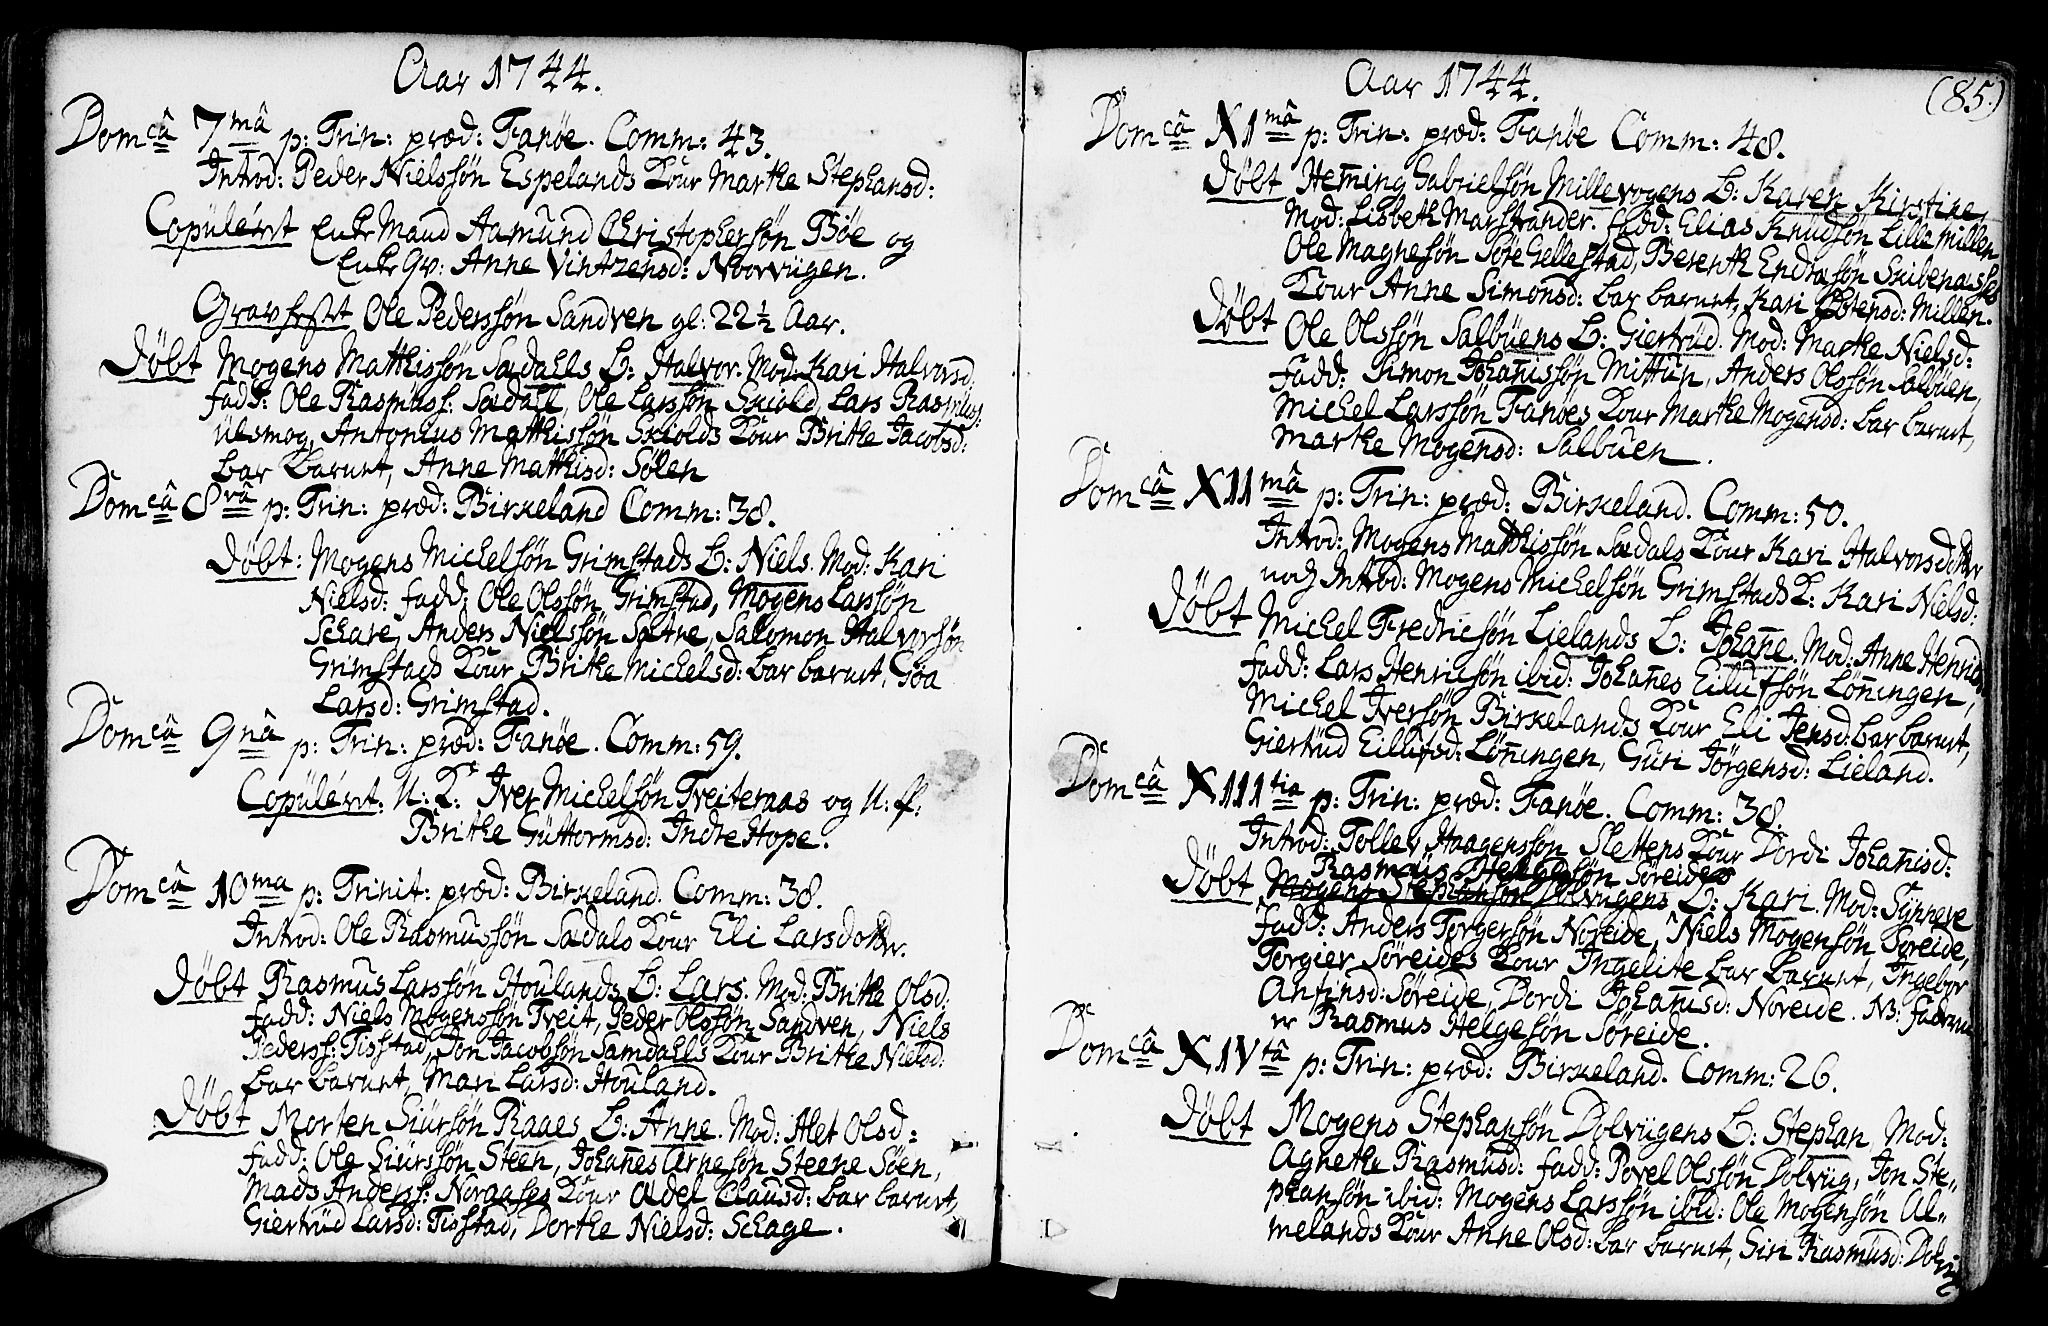 Aar 1744.
Domcâ 7mâ p: Trin: præd: Fanøe. Comm: 43.
Introd: Peder Nielssøn Espelands Kone Marthe Stephansd:
Copulêret Enke Mand Aamund Christophersøn Bøe og
Enke Qv: Anne Vintzensd: Norvügen.
Gravfestet Ole Pederssøn Sandven gl: 22½ Aar.
Døbt Mogens Matthissøn Sædahls B: Halvor. Mod: Kari Halvorsd:
fadd: Ole Rasmüss: Sædahl, Ole Larssøn Skiold, Lars Rasmüss:
Ulsmog, Antonius Matthissøn Skiolds Kone Brithe Jacobsd:
bar barnet, Anne Matthisd: Sølen
Domcâ 8vâ p: Trin: præd: Birkeland Comm: 38.
Døbt: Mogens Michelsøn Grimstads B: Niels. Mod: Kari
Nielsd: fadd: Ole Olssøn Grimstad, Mogens Larssøn
Schare, Anders Nielssøn Sætre, Salomon Halvorsøn
Grimstads Kone Brithe Michelsd: bar barnet, Gøa
Larsd: Grimstad.
Domcâ 9nâ p: Trin: præd: Fanøe. Comm: 59.
Copulêret: U: K: Iver Michelsøn Tveiteraas og U: P:
Brithe Güttormsd: Indre Hope.
Domcâ 10ma p: Trinit: præd: Birkeland. Comm: 38.
Introd: Ole Rasmussøn Sædals Kone Eli Larsdotter.
Døbt Rasmus Larssøn Houlands B: Lars. Mod: Brithe Olsd:
fadd: Niels Mogenssøn Tveit, Peder Olssøn Sandven, Niels
Pederss: Tisstad, Jon Jacobsøn Samdahls Kone Brithe Nielsd:
bar barnet, Mari Larsd: Houland.
Døbt Morten Siürsøn Raaes B: Anne. Mod: Alet Olsd:
fadd: Ole Siürssøn Steen, Johanes Arnesøn Steene Søen,
Mads Anderss: Noraases Kone Adel Clausd: bar barnet,
Giertrüd Larsd: Tisstad, Dorthe Nielsd: Schage.
Aar 1744.
(85.)
Domcâ XImâ p: Trin: præd: Fanøe Comm: 48.
Døbt Heming Gabrielsøn Millevogens B: Karen Kirstine,
Mod: Lisbeth Marstrander. fadd: Elias Knudsøn Lille Millen
Ole Magnesøn Søre Gellestad, Berenth Endresøn Skibenasses
Kone Anne Simonsd: bar barnet, Kari Østensd: Millen.
Døbt Ole Olssøn Salbüens B: Giertrüd. Mod: Marthe Nielsd:
fadd: Simon Johanissøn Mittün, Anders Olssøn Salbüen,
Michel Larssøn Fanøes Kone Marthe Mogensd: bar barnet,
Marthe Mogensd: Salbuen.
Domcâ XIImâ p: Trin: præd: Birkeland. Comm: 50.
Introd: Mogens Matthissøn Sædals Kone Kari Halvorsdotter
nok Introd: Mogens Michelsøn Grimstads K: Kari Nielsd:
Døbt Michel Fredricsøn Lielands B: Johane. Mod: Anne Henrics
fadd: Lars Henricsøn ibid: Johanes Eilufsøn Løningen,
Michel Iversøn Birkelands Kone Eli Jensd: bar barnet,
Giertrüd Eilufsd: Løningen, Güri Jørgensd: Lieland.
Domcâ XIIItia p: Trin: præd: Fanøe. Comm: 38.
Introd: Tollev Haagenssøn Slettens Kone Dordi Johanisd:
Rasmüs Helgesøn Søreides
Døbt Mogens Stephansøn Dolvügens B: Kari. Mod: Synneve
fadd: Anders Torgersøn Noreide, Niels Mogensøn Søreide,
Torgier Søreides Kone Ingelite bar barnet, Ingebor
Anfinsd: Søreide, Dordi Johanisd: Noreide. NB: faderen
er Rasmus Helgesøn Søreide.
Domcâ XIVtâ p: Trin: præd: Birkeland. Comm: 26.
Døbt Mogens Stephansøn Dolvügens B: Stephan, Mod:
Agnethe Rasmusd: fadd: Povel Olssøn Dolvüg, Jon Ste-
phansøn ibid: Mogens Larssøn ibid: Ole Mogensøn Al-
melands Kone Anne Olsd: bar barnet, Siri Rasmüsd: Dolvig